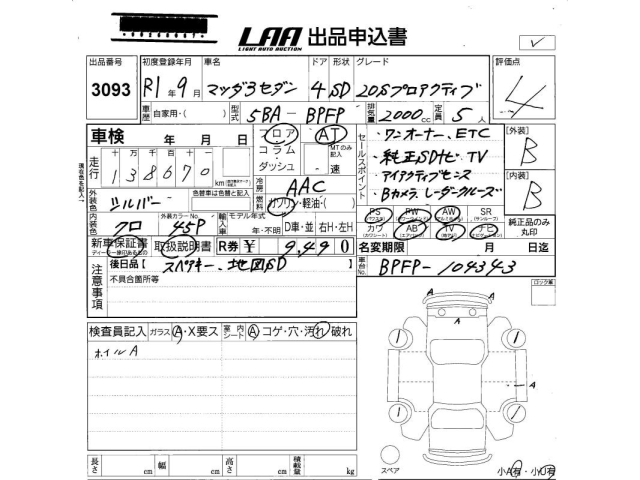 LAA 出品申込書
LIGHT AUTO AUCTION
出品番号 初度登録年月 車名 ドア 形状 グレード 評価点
3093 R1年9月 マツダ3セダン 4 SD 20Sプロアクティブ 4
車歴 自家用・( ) 型式 5BA-BPFP 排気量 2000cc 定員 5人
車検 年 月 日 フロア AT セールスポイント ・ワンオーナー、ETC [外装]
コラム MTのみ記入 ・純正SDナビ TV B
走行 十 万 千 百 十 一 ダッシュ 速 ・アイアクティブセンス [内装]
138670 km 冷房 AAC ・Bカメラ、レーダークルーズ B
外装色 シルバー 色替車は色替と記入 燃料 ガソリン・軽油・(
PS PW AW SR 純正品のみ丸印
内装色 クロ 外装カラーNo. 45P 輸入車 モデル年式 年・不明 D車・並 右H・左H
カワ AB TV ナビ
新車保証書 取扱説明書 R券 ¥ 9,490 名変期限 月 日迄
後日品【 スペアキー、地図SD 】 車台No. BPFP-104343
注意事項 不具合箇所等
ロック紙
検査員記入 ガラス A・X要ス 室内シート A コゲ・穴・汚れ・破れ
ホイルA
A
A A
A
スペア
長さ cm 幅 cm 高さ cm 積載量 kg
小A有・小U有